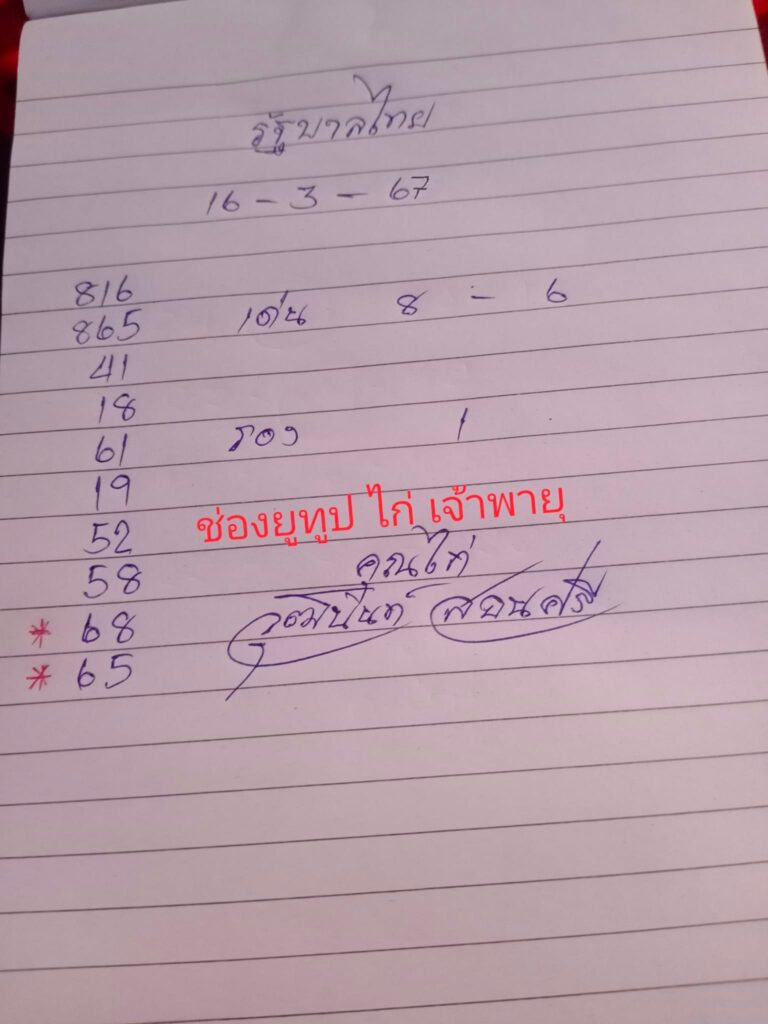 รัฐบาลไทย
16 - 3 - 67
816
865 เด่น 8 - 6
41
18
61 รอง 1
19
52 ช่องยูทูป ไก่ เจ้าพายุ
58 คุณไก่
* 68
* 65